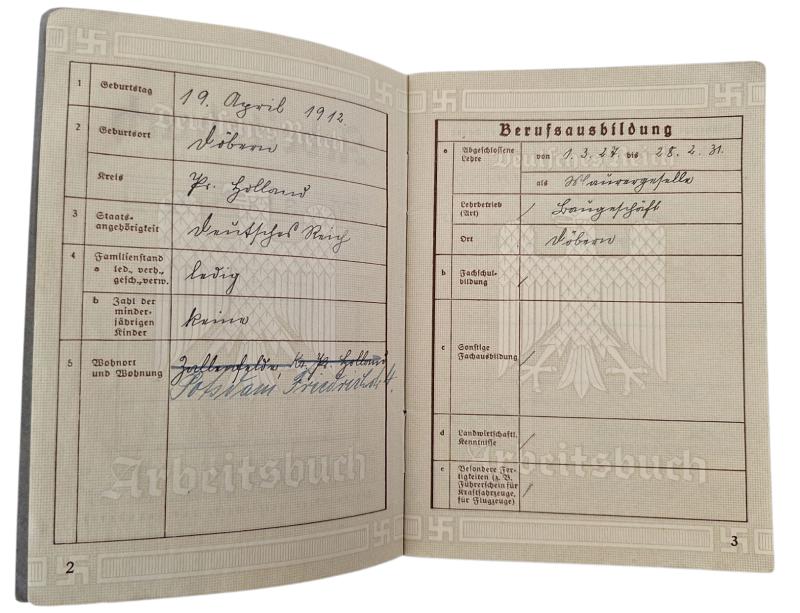 1 Geburtstag
19. April 1912.
2 Geburtsort
Döbern
Kreis
Pr. Holland
3 Staats-
angehörigkeit
Deutsches Reich
4 Familienstand
a led., verh.,
gesch., verw.
ledig
b Zahl der
minder-
jährigen
Kinder
keine
5 Wohnort
und Wohnung
Zallenfelde, Kr. Pr. Holland
Potsdam,
Deutsches Reich
Arbeitsbuch
2
Berufsausbildung
a Abgeschlossene
Lehre
von 1. 3. 27. bis 28. 2. 31.
als Maurergeselle
Lehrbetrieb
(Art)
Baugeschäft
Ort
Döbern
b Fachschul-
bildung
c Sonstige
Fachausbildung
d Landwirtschaftl.
Kenntnisse
e Besondere Fer-
tigkeiten (z. B.
Führerschein für
Kraftfahrzeuge,
für Flugzeuge)
Deutsches Reich
Arbeitsbuch
3